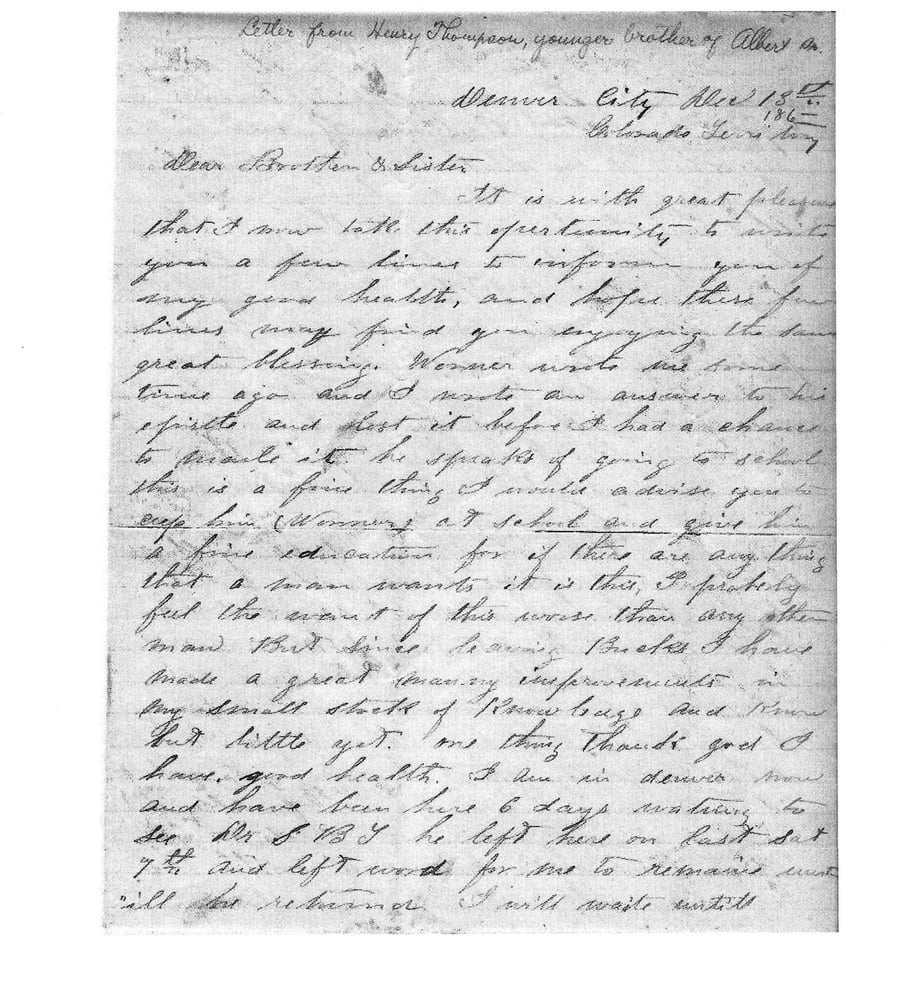 Letter from Henry Thompson, younger brother of Albert
Denver City Dec 13th
186
Colorado Territory
Dear Brother & Sister
It is with great pleasure
that I now take this opertunity to write
you a few lines to inform you of
my good health, and hope these few
lines may find you enjoying the same
great blessing. Wonner wrote me some
time ago and I wrote an answer to his
epistle and lost it before I had a chance
to maile it. he speaks of going to school
this is a fine thing I would advise you to
him (Wonner) at school and give him
a fine education for if there are any thing
that a man wants it is this, I probely
feel the want of this worse than any other
man But since leaving Bucks I have
made a great manny improvements in
my small stock of Knowledge and Know
but little yet. one thing thank god I
have. good health. I am in denver now
and have been here 6 days waiting to
see Dr S B T he left here on last sat
7th and left word for me to remaine unt
"ill he returnd I will waite untill